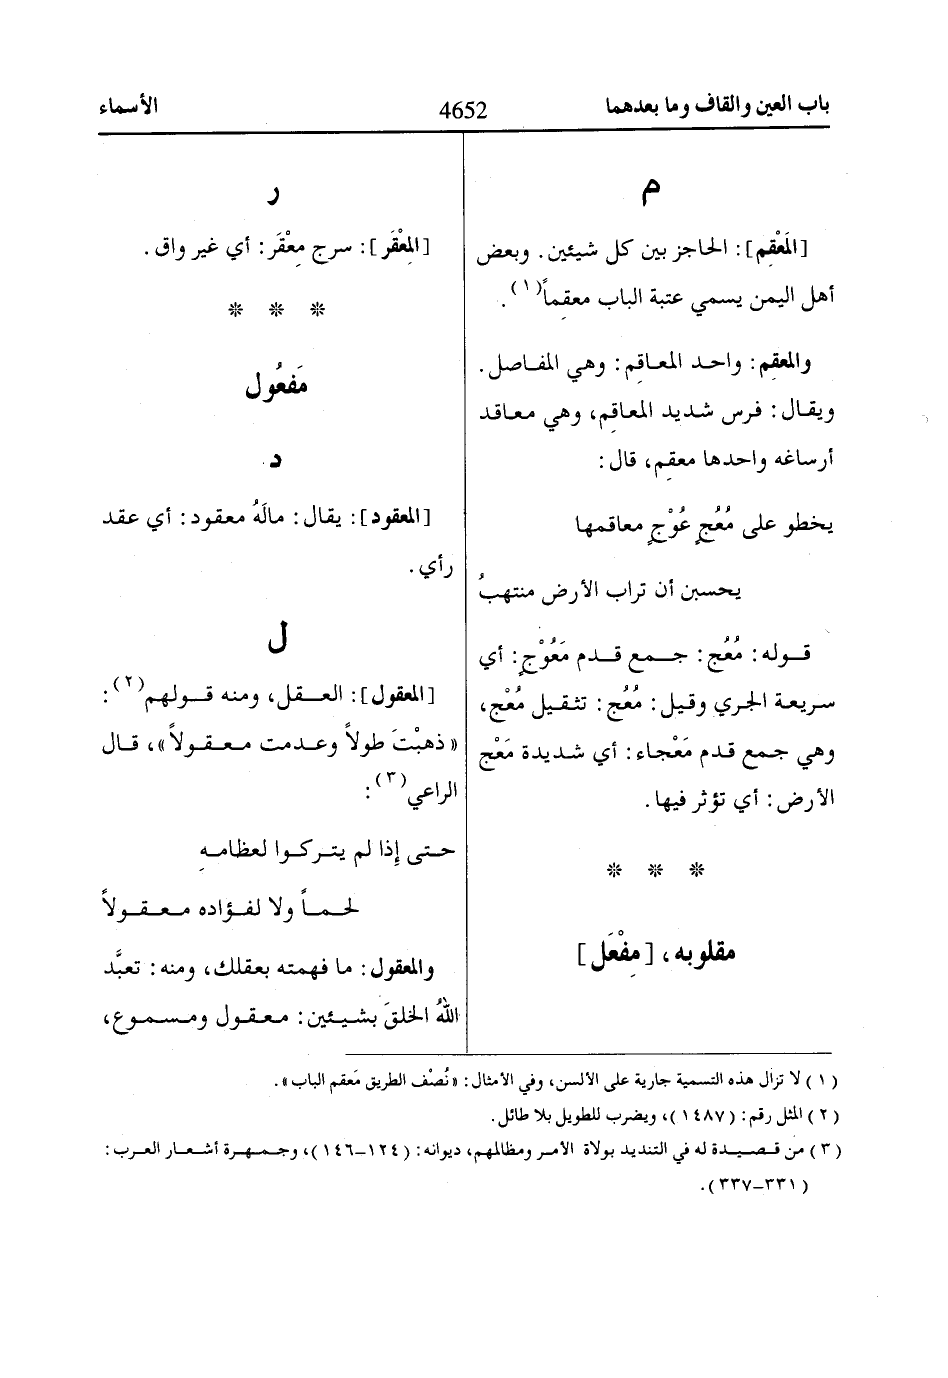 باب العين والقاف وما بعدهما
4652
الأسماء
م
[المَعْقِم]: الحاجز بين كل شيئين. وبعض
أهل اليمن يسمي عتبة الباب معقِماً(١).
والمعقِم: واحد المعاقِم: وهي المفاصل.
ويقال: فرس شديد المعاقِم، وهي معاقد
أرساغه واحدها معقِم، قال:
يخطو على مُعُجٍ عُوُجٍ معاقمها
يحسبن أن تراب الأرض منتهبُ
قوله: مُعُج: جمع قدم مَعُوْجٍ: أي
سريعة الجري وقيل: مُعُج: تثقيل مُعْج،
وهي جمع قدم مَعْجاء: أي شديدة مَعْج
الأرض: أي تؤثر فيها.
❊ ❊ ❊
مقلوبه، [مِفْعَل]
ر
[المِعْقَر]: سرج مِعْقَر: أي غير واق.
❊ ❊ ❊
مَفعُول
د
[المعقود]: يقال: مالَهُ معقود: أي عقد
رأي.
ل
[المعقول]: العقل، ومنه قولهم(٢):
«ذهبْتَ طولاً وعدمت معقولاً»، قال
الراعي(٣):
حتى إذا لم يتركوا لعظامِه
لحماً ولا لفؤاده معقولاً
والمعقول: ما فهمته بعقلك، ومنه: تعبَّد
اللهُ الخلقَ بشيئين: معقول ومسموع،
(١) لا تزال هذه التسمية جارية على الألسن، وفي الأمثال: «نُصْف الطريق مَعقم الباب».
(٢) المثل رقم: (١٤٨٧)، ويضرب للطويل بلا طائل.
(٣) من قصيدة له في التنديد بولاة الأمر ومظالمهم، ديوانه: (١٢٤-١٤٦)، وجمهرة أشعار العرب:
(٣٣١-٣٣٧).